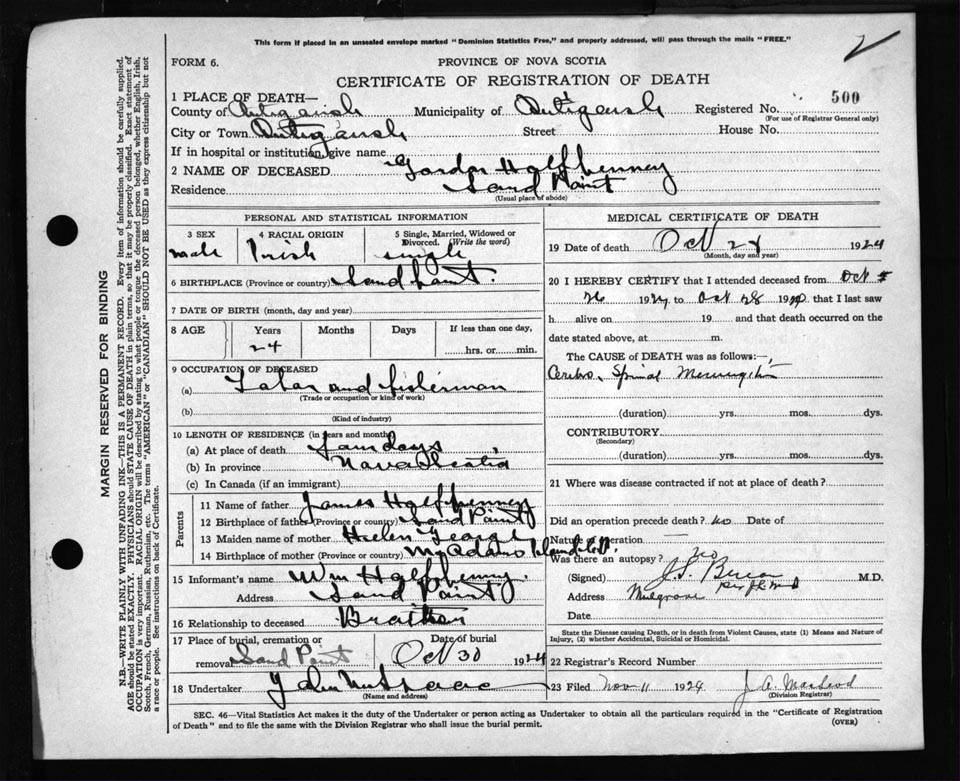 This form if placed in an unsealed envelope marked "Dominion Statistics Free," and properly addressed, will pass through the mails "FREE."
2
FORM 6.
PROVINCE OF NOVA SCOTIA
CERTIFICATE OF REGISTRATION OF DEATH
1 PLACE OF DEATH—
500
County of Antigonish Municipality of Antigonish Registered No.
(For use of Registrar General only)
City or Town Antigonish Street House No.
If in hospital or institution, give name
2 NAME OF DECEASED Gordon Halfpenney
Residence Sand Point
(Usual place of abode)
PERSONAL AND STATISTICAL INFORMATION
3 SEX 4 RACIAL ORIGIN 5 Single, Married, Widowed or Divorced. (Write the word)
male Irish single
6 BIRTHPLACE (Province or country) Sand Point.
7 DATE OF BIRTH (month, day and year)
8 AGE Years Months Days If less than one day,
24 hrs. or min.
9 OCCUPATION OF DECEASED
(a) Labor and fisherman
(Trade or occupation or kind of work)
(b)
(Kind of industry)
10 LENGTH OF RESIDENCE (in years and months)
(a) At place of death days
(b) In province Nova Scotia
(c) In Canada (if an immigrant)
Parents
11 Name of father James Halfpenney
12 Birthplace of father (Province or country) Sand Point
13 Maiden name of mother Helen
14 Birthplace of mother (Province or country) McAdams Island
15 Informant's name Wm Halfpenny.
Address Sand Point
16 Relationship to deceased Brother
17 Place of burial, cremation or removal Sand Point Date of burial Oct 30 1924
18 Undertaker John
(Name and address)
MEDICAL CERTIFICATE OF DEATH
19 Date of death Oct 28 1924
(Month, day and year)
20 I HEREBY CERTIFY that I attended deceased from Oct
26 1924 to Oct 28 19 that I last saw
h alive on 19 and that death occurred on
date stated above, at m.
The CAUSE of DEATH was as follows:—
Cerebro Spinal Meningitis
(duration) yrs. mos. dys.
CONTRIBUTORY
(Secondary)
(duration) yrs. mos. dys.
21 Where was disease contracted if not at place of death?
Did an operation precede death? no Date of
Nature of operation
Was there an autopsy? no
(Signed) J.S. M.D.
Address Mulgrave
Date
State the Disease causing Death, or in death from Violent Causes, state (1) Means and Nature of Injury, (2) whether Accidental, Suicidal or Homicidal.
22 Registrar's Record Number
23 Filed Nov 11 1924 J. A. MacLeod
(Division Registrar)
SEC. 46—Vital Statistics Act makes it the duty of the Undertaker or person acting as Undertaker to obtain all the particulars required in the "Certificate of Registration
of Death" and to file the same with the Division Registrar who shall issue the burial permit.
(OVER)
MARGIN RESERVED FOR BINDING
N.B.—WRITE PLAINLY WITH UNFADING INK—THIS IS A PERMANENT RECORD. Every item of information should be carefully supplied.
AGE should be stated EXACTLY. PHYSICIANS should STATE CAUSE OF DEATH in plain terms, so that it may be properly classified. Exact statement of
OCCUPATION is very important. RACIAL ORIGIN will be described by stating to what people or tongue the deceased person belonged, whether English, Irish,
Scotch, French, German, Russian, Ruthenian, etc. The terms "AMERICAN" or "CANADIAN" SHOULD NOT BE USED as they express citizenship but not
a race or people. See instructions on back of Certificate.